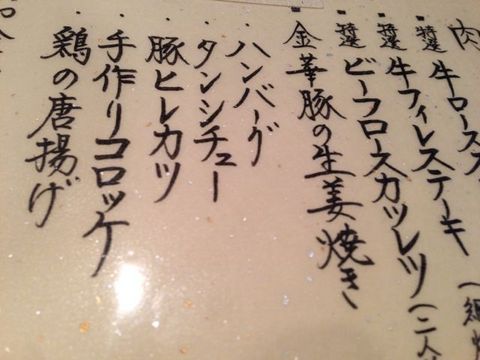 肉
牛ロース
特選 牛フィレステーキ（網焼
特選 ビーフロースカツレツ（二人
金華豚の生姜焼き
ハンバーグ
タンシチュー
豚ヒレカツ
手作りコロッケ
鶏の唐揚げ